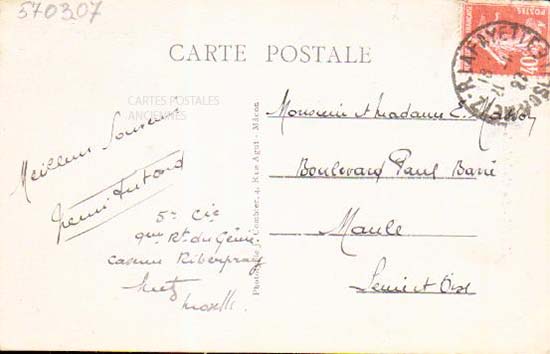 570307
CARTE POSTALE
CARTES POSTALES
ANCIENNES
POSTES
40
R. LAFAYETTE
METZ
Meilleurs Souvenirs
5e Cie
9me Rt. du Génie
Caserne Riberpray
Metz
Moselle
Photographie J. Combier, 4, Rue Agut - Mâcon
Monsieur et Madame E.
Boulevard Paul Barré
Maule
Seine et Oise